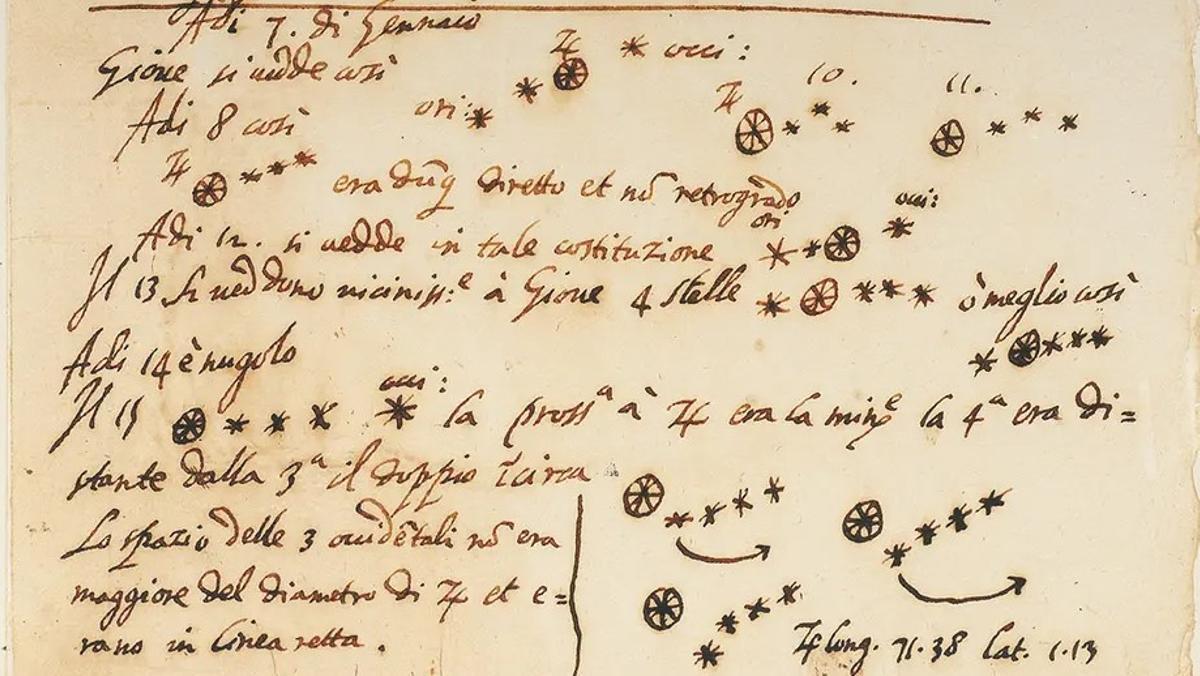 Adi 7. di Gennaio
Gioue si uedde così ♃ occi:
ori:
Adi 8 così
♃ 10. 11.
♃ era dūq̃ diretto et nō retrogrado
Adi 12. si uedde in tale costituzione ori occi:
Il 13 si ueddono vicinissᵉ à Gioue 4 stelle ò meglio così
Adi 14 è nugolo
Il 15 occi: la prossᵃ à ♃ era la minᵉ la 4ᵃ era di=
stante dalla 3ᵃ il doppio circa
Lo spazio delle 3 occidētali nō era
maggiore del diametro di ♃ et e=
rano in linea retta.
♃ long. 71.38 lat. 1.13